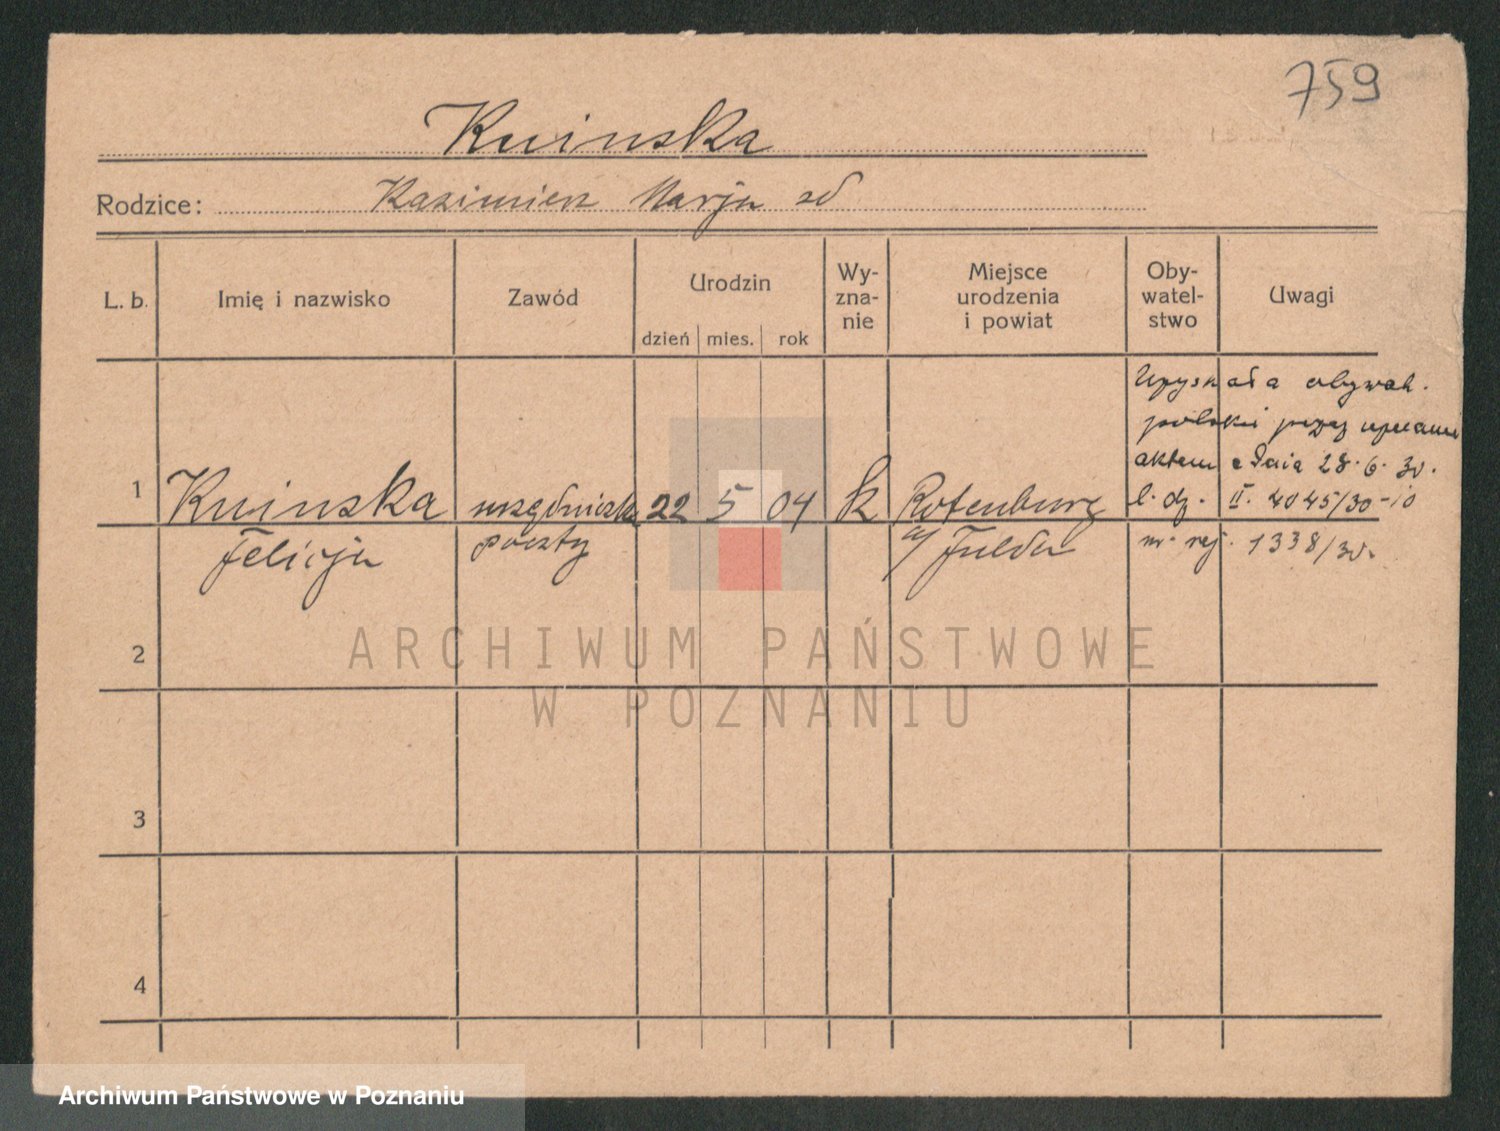 759
Kuinska
Rodzice: Kazimierz Marja
L. b.
Imię i nazwisko
Zawód
Urodzin
dzień mies. rok
Wy-
zna-
nie
Miejsce
urodzenia
i powiat
Oby-
watel-
stwo
Uwagi
1
Kuinska
Felicja
urzędniczka
poczty
22 5 04
k
Rotenburg
a/ Fulda
obywat.
aktem z dnia 28.6.30.
l. dz. II. 4045/30-10
nr. rej. 1338/30.
2
3
4
ARCHIWUM PAŃSTWOWE
W POZNANIU
Archiwum Państwowe w Poznaniu